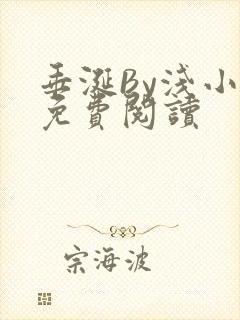 垂涎By淺小
免費閱讀
宗海波